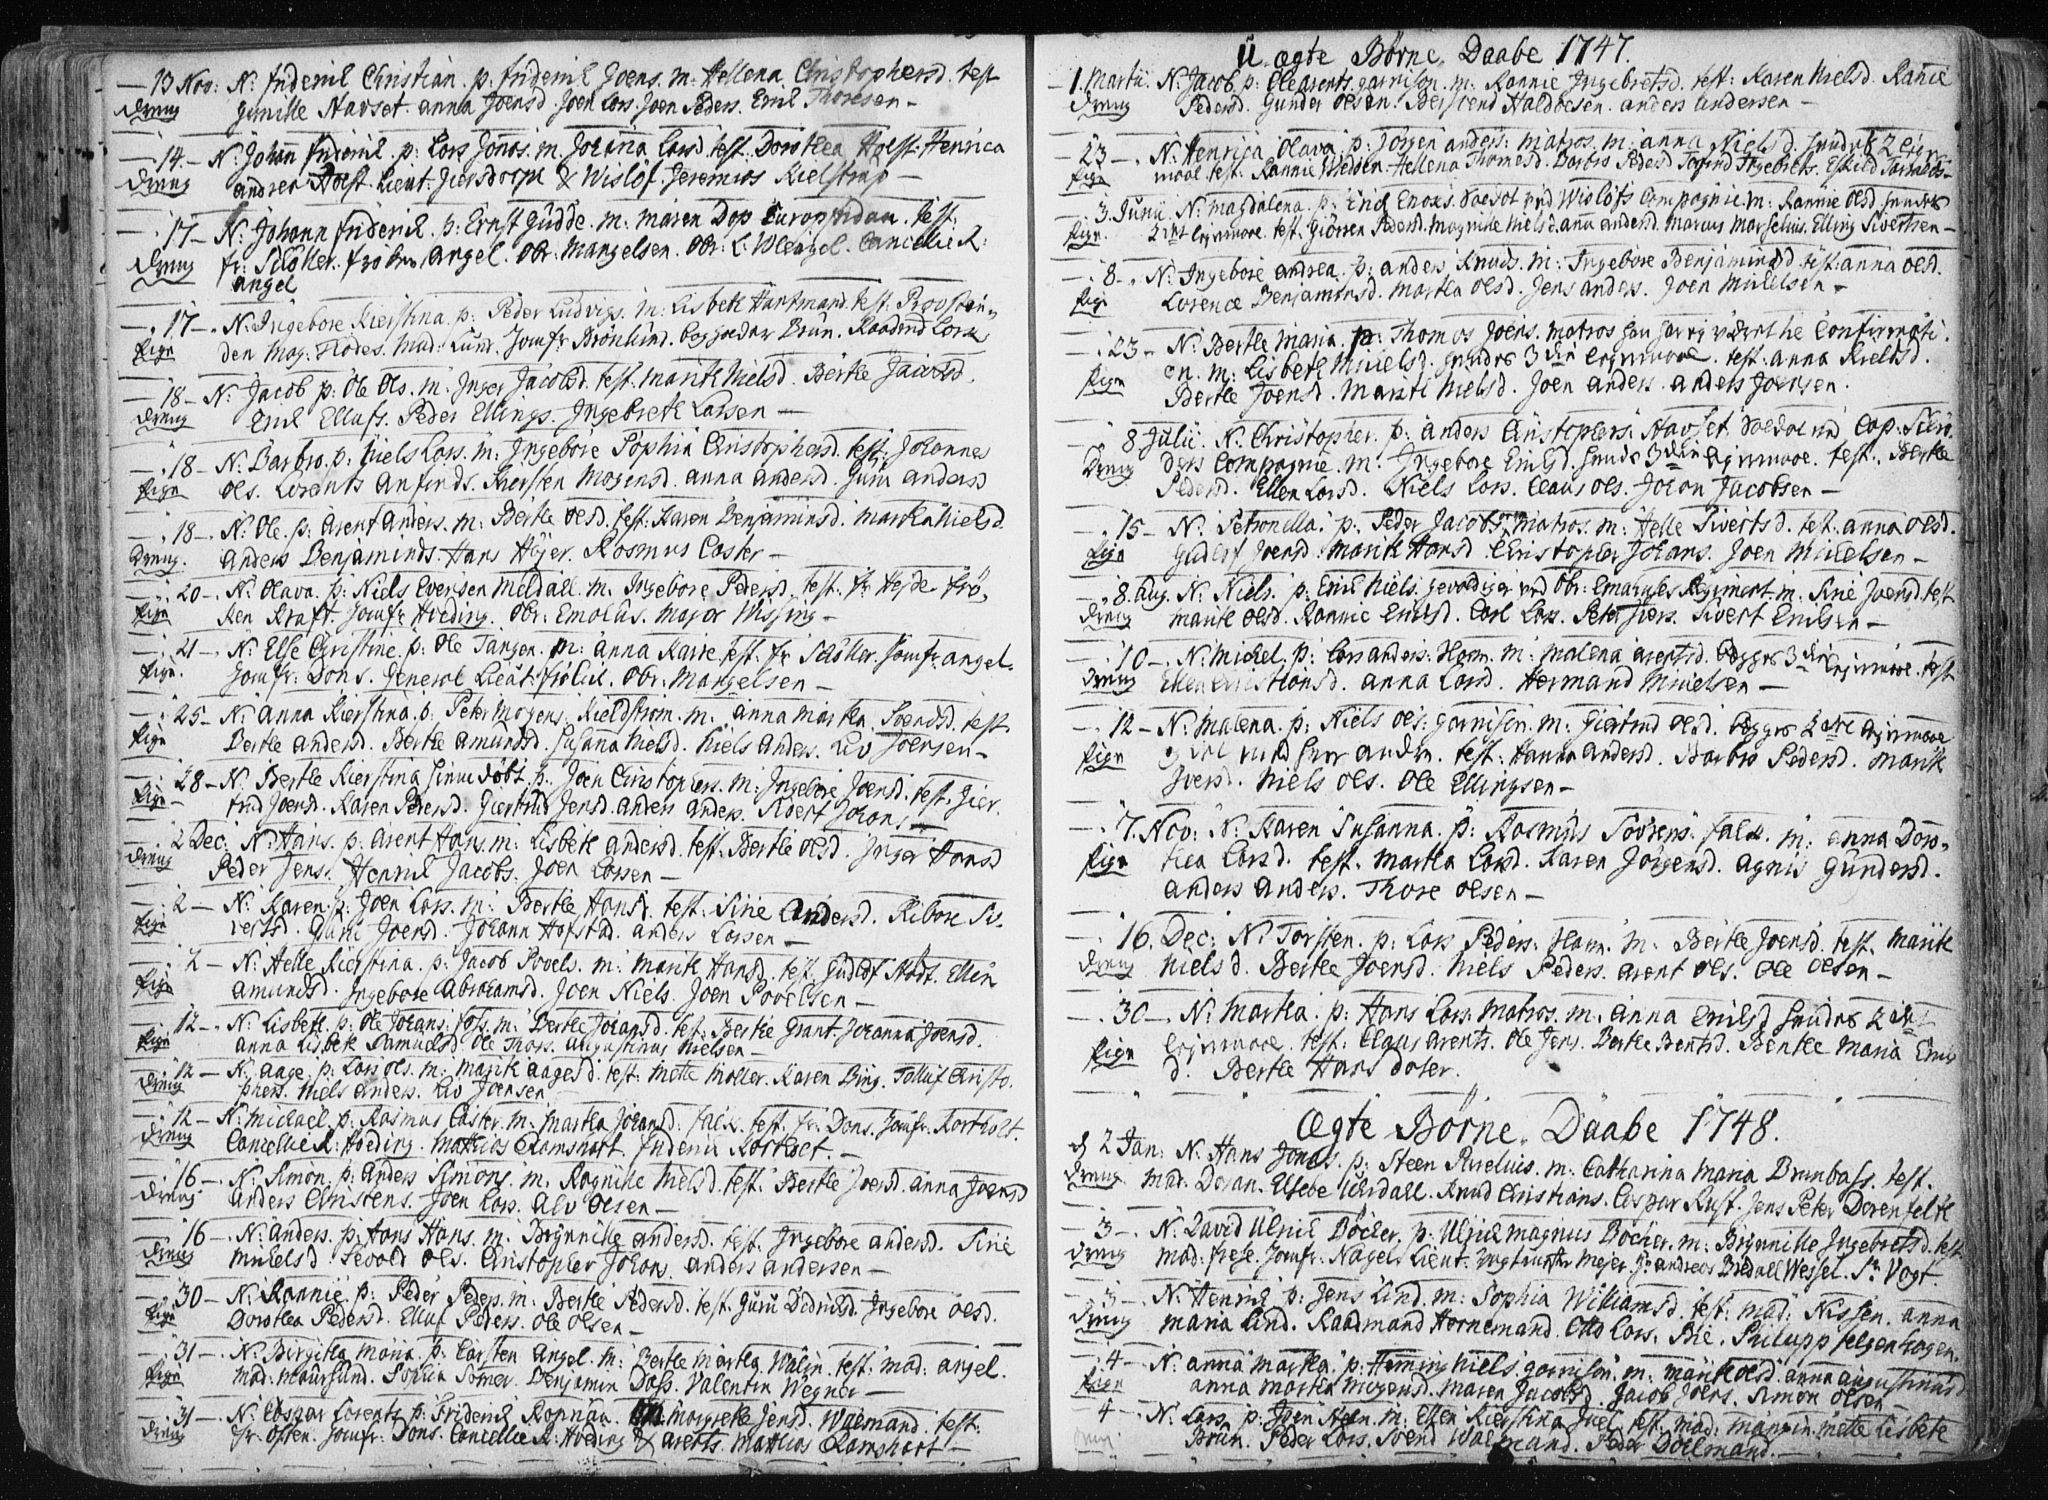 13 Nov: N: Friderich Christian. p: Friderich Joens. m: Hellena Christophersd. test
Dreng Gunille Havset. anna Joensd. Joen Lars. Joen Peders. Erich Thoresen —
14 — N: Johan Friderich p: Lars Jonas. m. Johanna Larsd. test. Dorothea Holst. Henrica
Dreng andrea Holst. Lieut: & Wisløf. Jeremias Kielstrup —
17 — N: Johann Friderich. p: Ernst Gudde. m: maren Dop. test:
Dreng fr: Schøller. frøken Angel. Obr: Mangelsen. Obr: L: Cancellie R:
angel
17 — N: Ingebore Kierstina. p: Peder Ludvigs. m: Lisbeth Hartmand. test. Provstin-
Pige den Mag: Flodes. Mad: Lund. Jomfr Brønlund. Brun. Raadmd Lorck
18 — N: Jacob p: Ole Ols. m: Inger Jacobsd. test. marith Nielsd. Berthe
Dreng Erich Ellufs. Peder Ellings. Ingebreth Larsen —
18 — N: Barbro. p: Niels Lars. m: Ingebore Sophia Christophersd. test: Johannes
Pige Ols. Lorents Anfinds. Kiersten Mogensd. anna andersd. Guru andersd
18 — N: Ole. p: Arent Anders. m: Berthe Olsd. test: Karen Benjaminsd. martha Nielsd.
Dreng. Anders Benjaminds. Hans Høyer. Rasmus Caster —
20 — N: Olava. p: Niels Eversen Meldall. m: Ingebore Pedersd. test. fr: Hejde. frø-
Pige ken Kraft. Jomfr Hveding. Obr: Emahus. Major Wissing —
21 — N: Elle Christine. p: Ole Tangen. m: anna Karie. test. fr Schøller. Jomfr: angel.
Pige. Jomfr: Dons. General Lieut Frølich. Obr: Mangelsen —
25 — N: Anna Kierstina. p: Peter Mogens. Kieldstrøm. m: anna martha Svendsd. test
Pige Berthe andersd. Berthe Amundsd. Susanna Nielsd. Niels Anders. Joensen —
28 — N: Berthe Kierstina hiemdøbt. p: Joen Christophers. m: Ingebore Joensd. test. Gier-
Pige — trud Joensd. Karen Pedersd. Giertrud Jensd. anders anders. Sivert Johans
2 Dec: N: Hans. p: Arent Hans. m: Lisbeth andersd. test: Berthe Olsd. Inger Hansd
Dreng Peder Jens. Henrich Jacobs. Joen Larsen —
2 — N: Karen. p: Joen Lars. m: Berthe Hansd. test: Sirie Andersd. Ribore Si-
Pige vertsd. Guru Joensd. Johann Hofstad. anders Larsen —
2 — N: Helle Kierstina. p: Jacob Povels. m: marith Hansd. test. Gudlof Ellen
Pige Amundsd. Ingebore Abrahamsd. Joen Niels. Joen Povelsen —
12 — N: Lisbeth. p: Ole Johans: m: Berthe Johansd. test. Berthe Grant. Johanna Joensd.
Pige anna Lisbeth Samuelsd. Ole Thors. Augustinus Nielsen —
12 — N: Aage. p: Lars Ols. m: marith Aagesd. test: mette Møller. Karen Bing. Tolluf Christo-
Dreng phers. Niels Anders. Joensen
12 — N: Michael. p: Rasmus Caster. m: martha Johansd. falck. test. fr: Dons. Jomfr: Kortholt.
Dreng Cancellie R: Hveding. Mathias Ramshart. Friderich Kortholt. —
16 — N: Simon. p: Anders Simons. m. Ragnille Nielsd. test. Berthe Joensd. anna Joensd
Dreng Anders Christens. Joen Lars. Alv Olsen —
16 — N: Anders. p: Hans Hans. m: Brynnille andersd. test. Ingebore andersd. Sirie
Dreng Michelsd. Sevald Ols. Christopher Johans. anders andersen —
30 — N: Rannie. p: Peder Peders. m: Berthe Pedersd. test. Guru Didrichsd. Ingebore Olsd.
Pige Dorothea Pedersd. Elluf Peders. Ole Olsen —
31 — N: Birgitha maria. p: Carsten Angel. m: Berthe martha Walin. test. mad: angel.
Pige mad: Maursund. Sophia Sømer. Benjamin Dass. Valentin Wegner —
31 — N: Caspar Lorents p: Friderich Rønnau. m: Margrethe Jensd. Waemand. test.
Dreng fr: Osten. Jomfr: Dons. Cancellie R: Hveding & Arents. Mathias Ramshart —
U-ægte Børne-Daabe 1747.
1 Martii. N: Jacob. p: Ole Arents. garnison. m: Rannie Ingebretsd. test: Karen Nielsd. Rannie
Dreng Pedersd. Gunder Olsen. Halvorsen. anders andersen —
23 — N: Henrica Olava. p: Jørgen anders: matros. m: anna Nielsd. hendes 2
Pige test: Rannie Hellena Thomesd. Barbro Pedersd. Ingebrets. Eskild
3 Junii. N: Magdalena. p: Erich Enoks. Soldat ved Wisløfs Compagnie. m: Rannie Olsd hendes
Pige. 2det leyermaal. test. Giøren Pedersd. Magnille Nielsd. anna andersd. Marcus Marselius. Elling Sivertsen —
8 — N: Ingebore andrea. p: anders Knuds. m: Ingebore Benjaminsd. test: anna Olsd.
Pige Lorence Benjaminsd. Martha Olsd. Jens anders. Joen Michelsen —
23 — N: Berthe Maria. p: Thomas Joens. matros Confirmati-
Pige on. m: Lisbeth Michelsd. hendes 3die leyermaal. test: anna Kieldsd.
Berthe Joensd. Marit Nielsd. Joen anders. anders Joensen.
8 Julii. N: Christopher. p: Anders Christophers. Havset. Soldat ved Cap: Schrø-
Dreng ders Compagnie. m: Ingebore Erichsd. hendes 3die leyermaal. test. Berthe
Pedersd. Ellen Larsd. Niels Lars. Claus Ols. Johan Jacobsen —
15 — N: Petronella. p: Peder Jacobs matros. m: Helle Sivertsd. test. anna Olsd.
Pige Gudlof Joensd. Marith Hansd. Christopher Johans. Joen Michelsen —
8 Aug. N: Niels. p: Erich Niels. gevaldiger ved Obr: Emahuses Regiment. m: Sirie Joensd. test
Dreng Marith Olsd. Rannie Erichsd. Carl Lars. Peter Ivers. Sivert Erichsen —
10 — N: Michel. p: Lars Anders: m: Malena Arentsd. begges 3die leyermaal. test
Dreng Ellen Christiansd. anna Larsd. Hermand Michelsen —
12 — N: Malena. p: Niels Ols: garnison. m: Giertrud Olsd. begges 2det leyermaal
Pige med hver anden. test. Hanna andersd. Barbro Pedersd. Marith
Iversd. Niels Ols. Ole Ellingsen —
7. Nov: N: Karen Susanna. p: Rasmus Sørens. falck. m: anna Doro-
Pige thea Larsd. test. Martha Larsd. Karen Jørgensd. Agnis Gundersd.
anders anders. Thore Olsen —
16. Dec: N: Torsten. p: Lars Peders: m: Berthe Joensd. test. Marith
Dreng Nielsd. Berthe Joensd. Niels Peders. Arent Ols. Ole Olsen —
30 — N: Martha. p: Hans Lars: Matros. m: Anna Erichsd. hendes 2det
Pige leyermaal. test: Claus Arents. Ole Jens. Berthe Bentsd. Benthe Maria Erich
d. Berthe Hans doter.
Ægte Børne-Daabe 1748.
d 2 Jan: N: Hans Jonas. p: Steen m: Catharina Maria Brunbass. test.
Dreng mad: Doran. Elsebe Uchsdall. Knud Christians. Caspar Kust. Jens Peter Dorenfeldt
3 — N: David Ulrich Bøcher. p: Ulrich Magnus Bøcher. m: Brynnille Ingebretsd. test
Dreng mad: Frese. Jomfr: Nagels. Lieut. Mejer. Sr Andreas Bredall Wessel. Sr. Vogt.
3 — N: Henrich. p: Jens Lind. m: Sophia Williamsd. test: mad: Nissen. anna
Dreng Maria Lind. Raadmand Hornemand. Otto Lars. Bie. Philipp Felgenhagen.
4 — N: Anna Martha. p: Heming Niels garnison. m: Marith Olsd. anna augustinusd
Pige anna Martha Mogensd. Maren Jacobsd. Jacob Joens. Simon Olsen —
4 — N: Lars. p: Joen Steen. m: Ellen Kierstina Juel. test. mad: Mangin. mette Lisbeth
Dreng Brun. Peder Lars. Svend Waemand. Peder